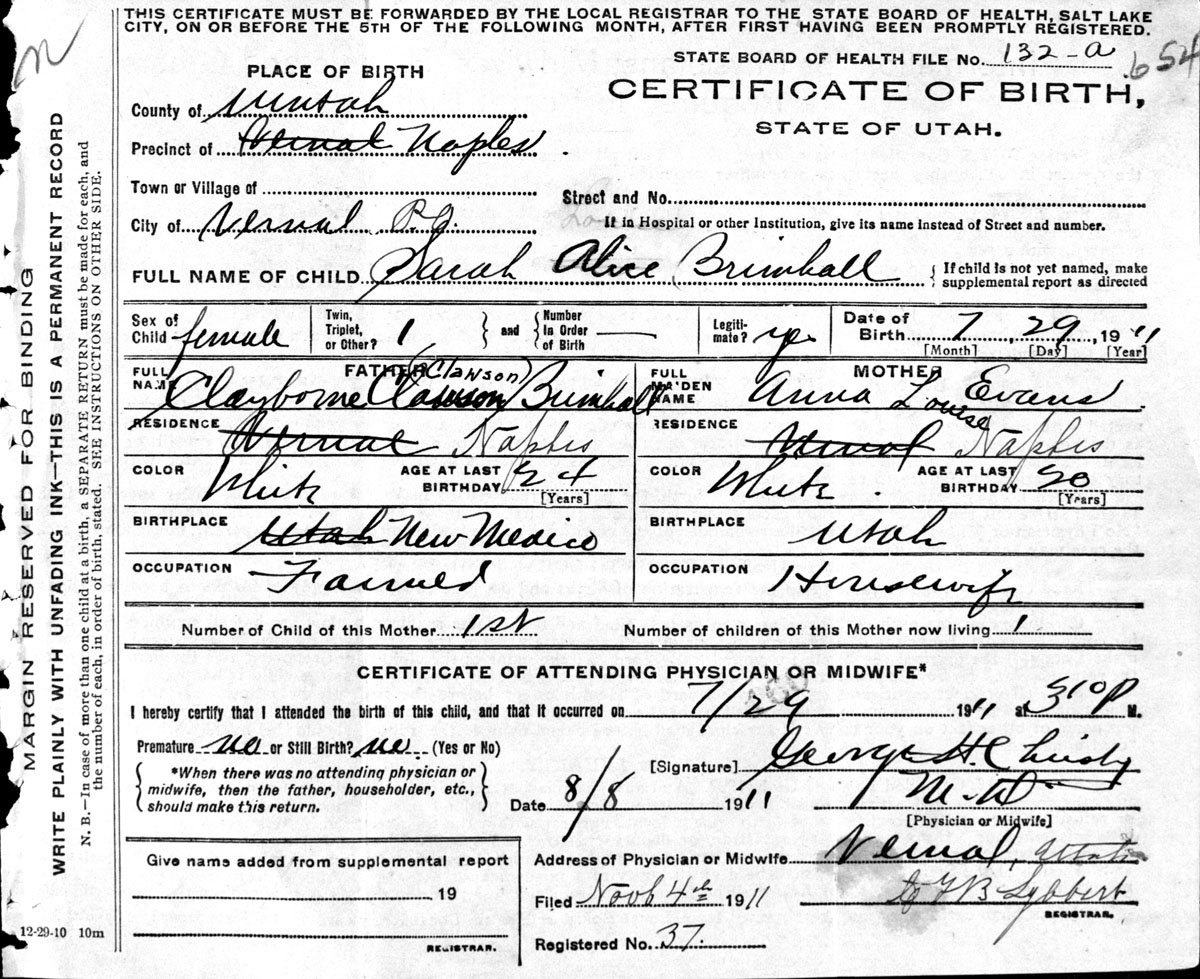 THIS CERTIFICATE MUST BE FORWARDED BY THE LOCAL REGISTRAR TO THE STATE BOARD OF HEALTH, SALT LAKE
CITY, ON OR BEFORE THE 5TH OF THE FOLLOWING MONTH, AFTER FIRST HAVING BEEN PROMPTLY REGISTERED.
STATE BOARD OF HEALTH FILE No. 132-a 654
PLACE OF BIRTH
CERTIFICATE OF BIRTH,
STATE OF UTAH.
County of Uintah
Precinct of Vernal Naples
Town or Village of
Street and No.
City of Vernal P.O.
If in Hospital or other Institution, give its name instead of Street and number.
FULL NAME OF CHILD Sarah Alice Brimhall
{ If child is not yet named, make
supplemental report as directed
Sex of
Child female
Twin,
Triplet,
or Other? 1
and
Number
In Order
of Birth —
Legiti-
mate? yes
Date of
Birth 7, 29, 1911
[Month] [Day] [Year]
FATHER
FULL
NAME Clayborne Clawson (Clawson) Brimhall
MOTHER
FULL
MAIDEN
NAME Anna Louise Evans
RESIDENCE Vernal Naples
RESIDENCE Vernal Naples
COLOR White
AGE AT LAST
BIRTHDAY 24
[Years]
COLOR White.
AGE AT LAST
BIRTHDAY 20
[Years]
BIRTHPLACE Utah New Mexico
BIRTHPLACE Utah
OCCUPATION Farmer
OCCUPATION Housewife
Number of Child of this Mother 1st
Number of children of this Mother now living 1
CERTIFICATE OF ATTENDING PHYSICIAN OR MIDWIFE*
I hereby certify that I attended the birth of this child, and that it occurred on 7/29 1911 at 310 P M.
Premature no or Still Birth? no (Yes or No)
*When there was no attending physician or
midwife, then the father, householder, etc.,
should make this return.
[Signature] George H. Christy
M.D.
[Physician or Midwife]
Date 8/8 1911
Give name added from supplemental report
19
REGISTRAR.
Address of Physician or Midwife Vernal, Utah
Filed Nov 4th 1911
REGISTRAR.
Registered No. 37.
12-29-10 10m
MARGIN RESERVED FOR BINDING
WRITE PLAINLY WITH UNFADING INK—THIS IS A PERMANENT RECORD
N. B.—In case of more than one child at a birth, a SEPARATE RETURN must be made for each, and
the number of each, in order of birth, stated. SEE INSTRUCTIONS ON OTHER SIDE.